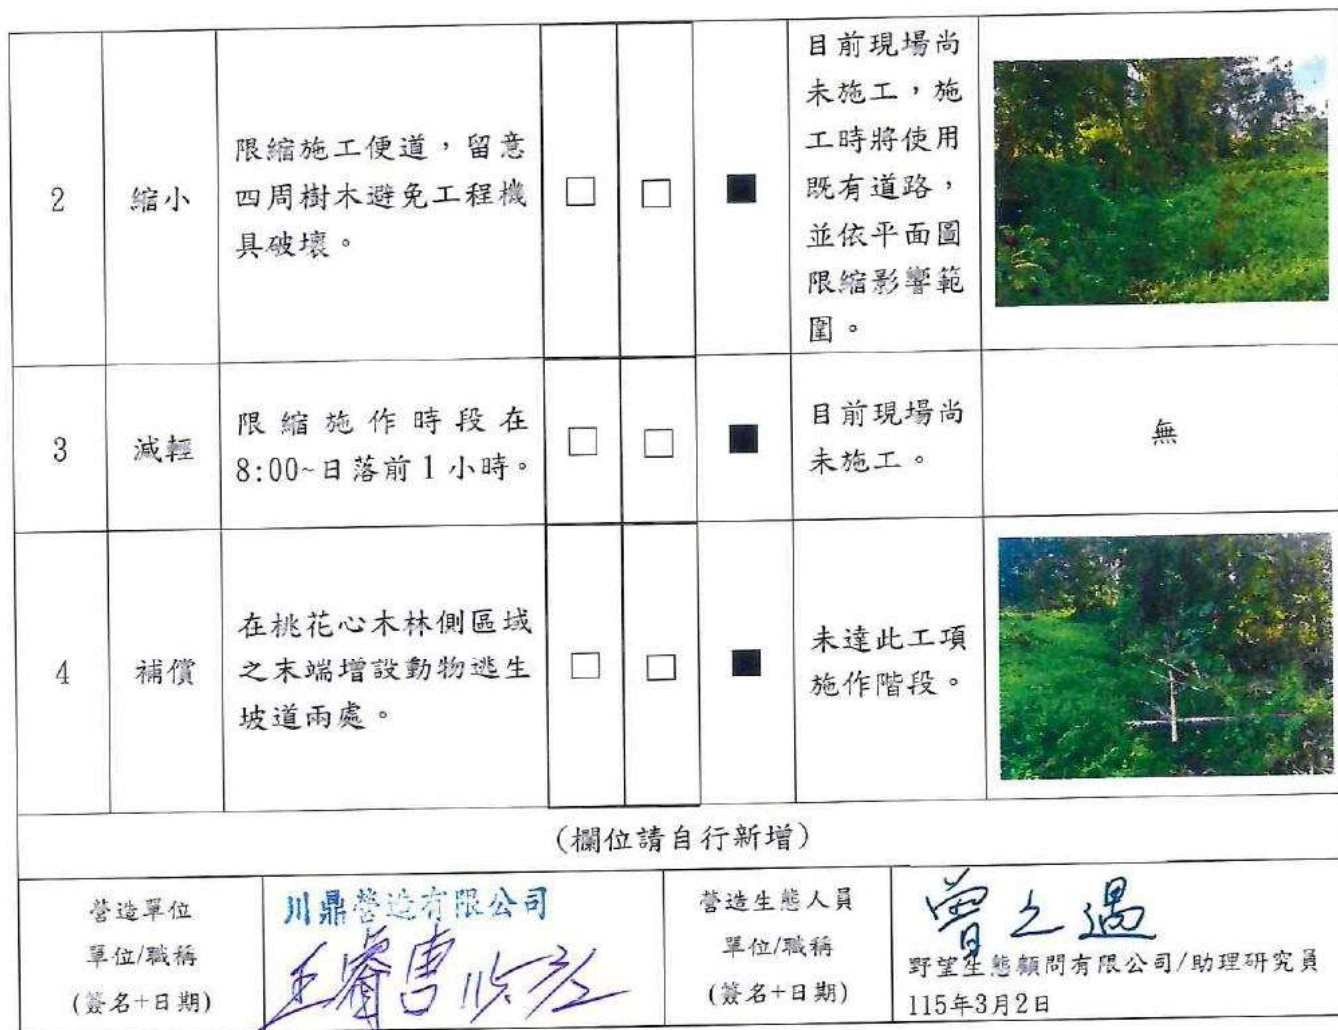 2
縮小
限縮施工便道，留意
四周樹木避免工程機
具破壞。
□ □ ■
目前現場尚
未施工，施
工時將使用
既有道路，
並依平面圖
限縮影響範
圍。
3
減輕
限縮施作時段在
8:00~日落前1小時。
□ □ ■
目前現場尚
未施工。
無
4
補償
在桃花心木林側區域
之末端增設動物逃生
坡道兩處。
□ □ ■
未達此工項
施作階段。
(欄位請自行新增)
營造單位
單位/職稱
(簽名+日期)
川鼎營造有限公司
營造生態人員
單位/職稱
(簽名+日期)
曾之遇
野望生態顧問有限公司/助理研究員
115年3月2日